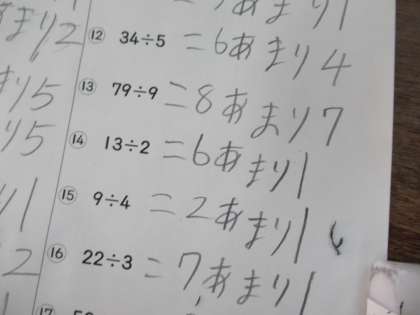 あまり1
まり2
⑫ 34÷5 =6あまり4
まり5
⑬ 79÷9 =8あまり7
り5
⑭ 13÷2 =6あまり1
⑮ 9÷4 =2あまり1
り1
⑯ 22÷3 =7あまり1
2
⑰